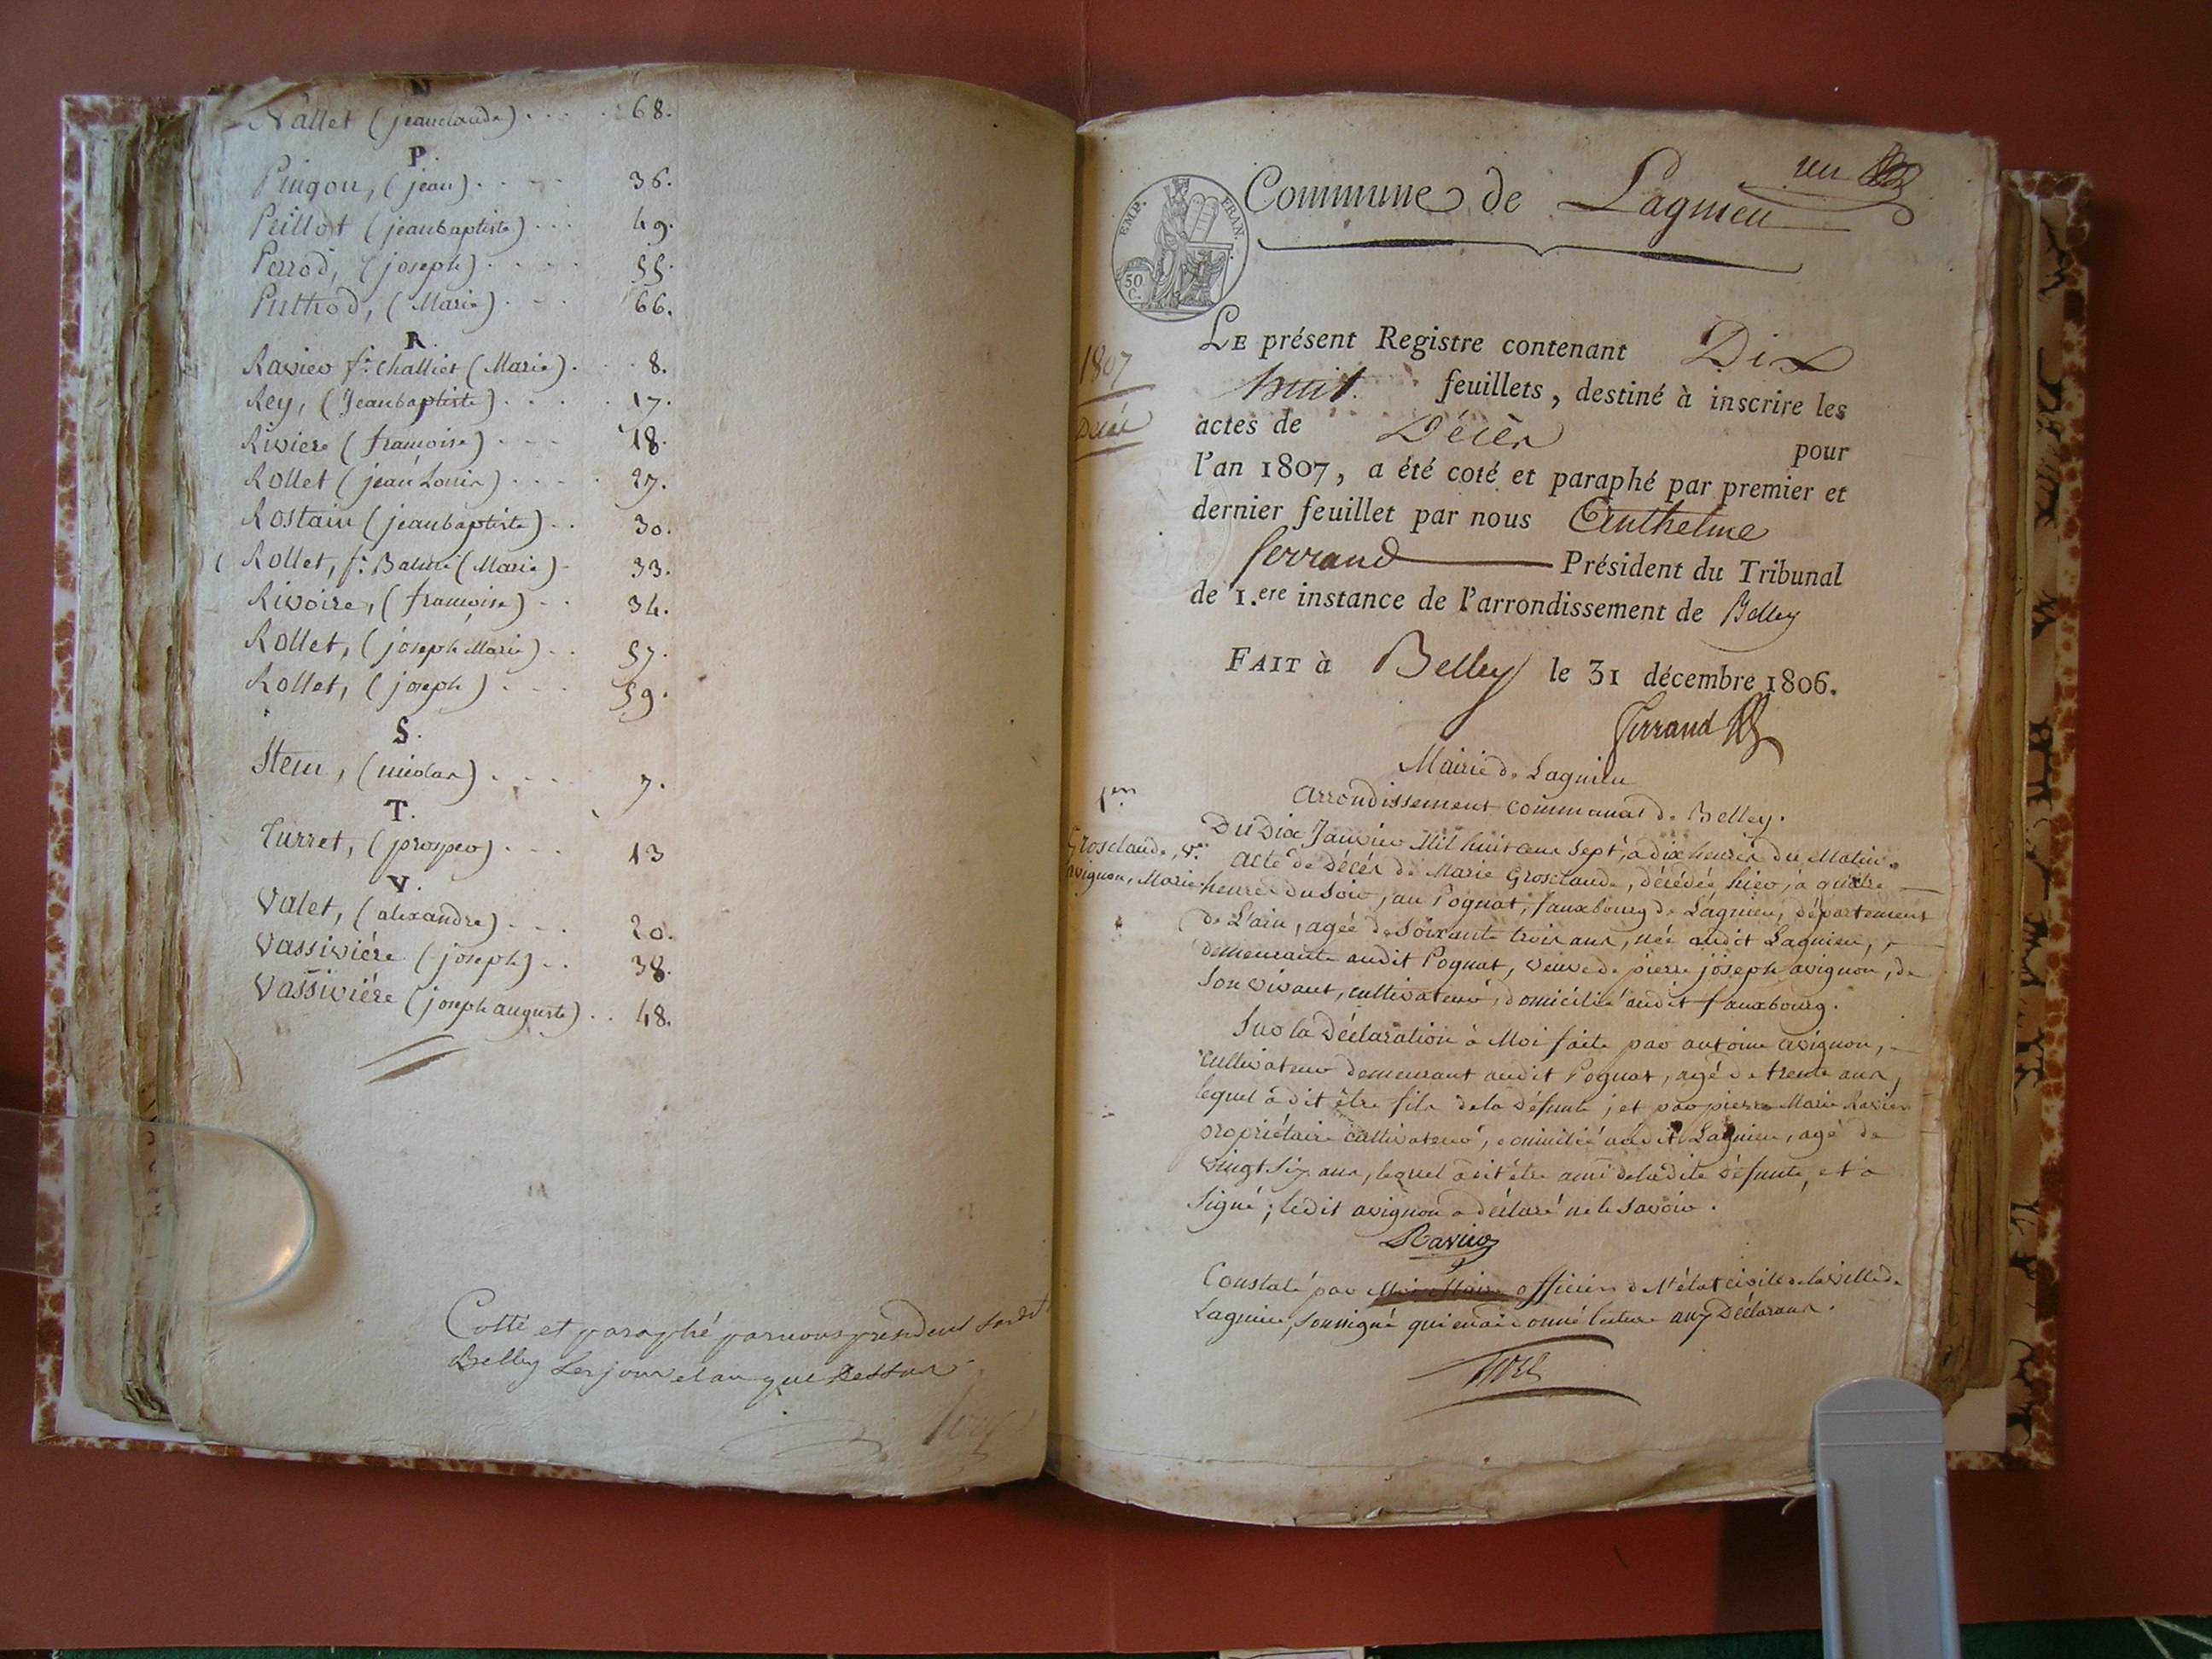 N
Nallet (jeanclaude) . . . . 68.
P.
Pingon, (jean) . . . . 36.
Peillot (jeanbaptiste) . . . 49.
Perrod, (joseph) . . . . 55.
Puthod, (Marie) . . . 66.
R.
Ravier f.e Challiet (Marie) . . . 8.
Rey, (Jeanbaptiste) . . . . 17.
Riviere (françoise) . . . 18.
Rollet (jean Louis) . . . . 27.
Rostain (jeanbaptiste) . . 30.
Rollet, f.e (Marie) . 33.
Rivoire, (françoise) . . 34.
Rollet, (joseph Marie) . . 57.
Rollet, (joseph) . . . 59.
S.
Stem, (nicolas) . . . . 7.
T.
Turret, (prosper) . . . 13
V.
Valet, (alexandre) . . . 20.
Vassiviére (joseph) . . 38.
Vassiviére (joseph auguste) . . 48.
Cotté et paraphé par nous président
Belley les jour et an que dessus
un
Commune de Lagnieu
EMP. FRAN.
50 C.
1807
Décés
LE présent Registre contenant Dix
huit feuillets, destiné à inscrire les
actes de Décès pour
l'an 1807, a été coté et paraphé par premier et
dernier feuillet par nous Anthelme
ferrand Président du Tribunal
de 1.ere instance de l'arrondissement de Belley
FAIT à Belley le 31 décembre 1806.
ferrand
Mairie de Lagnieu
arrondissement communal de Belley.
1.er
Grosclaude, v.e
avignon, Marie
Du Dix Janvier Mil huit cent sept, à dix heures du Matin.
acte de Décés de Marie Grosclaude, décédée hier, à quatre
heures du soir, au Pognat, fauxbourg de Lagnieu, département
de L'ain, agée de soixante trois ans, née audit Lagnieu,
demeurante audit Pognat, veuve de pierre joseph avignon, de
son vivant, cultivateur, domicilié audit fauxbourg.
Sur la Déclaration à Moi faite par antoine avignon,
cultivateur demeurant audit Pognat, agé de trente ans,
lequel a dit être fils de la défunte ; et par pierre Marie Ravier
propriétaire cultivateur, domicilié audit Lagnieu, agé de
vingt six ans, lequel a dit être ami de ladite défunte, et a
signé ; ledit avignon a déclaré ne le savoir.
Ravier
Constaté par officier de l'état civil de la ville de
Lagnieu, soussigné qui en ai donné lecture aux Déclarans.